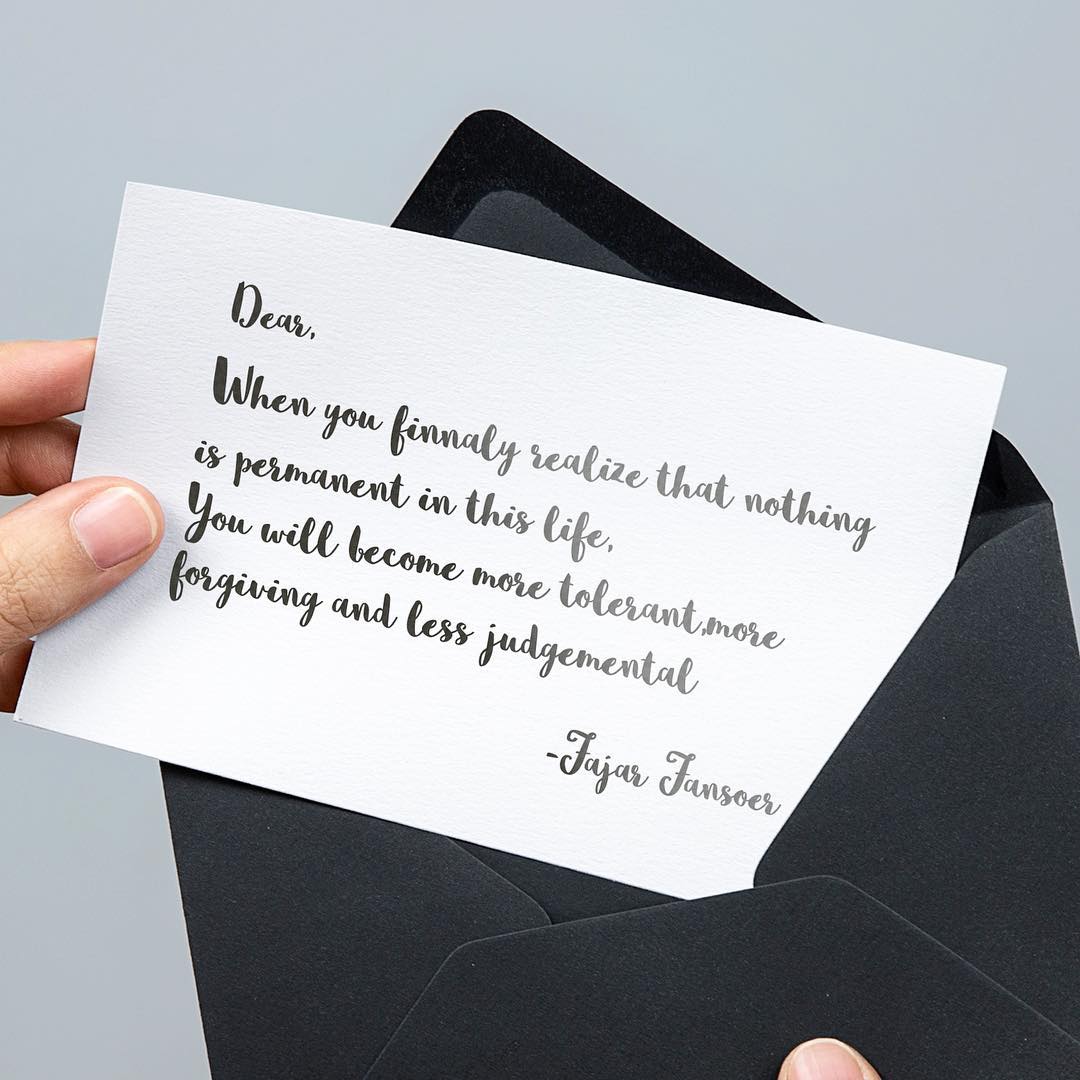 Dear,
When you finnaly realize that nothing
is permanent in this life,
You will become more tolerant,more
forgiving and less judgemental
-Fajar Fansoer